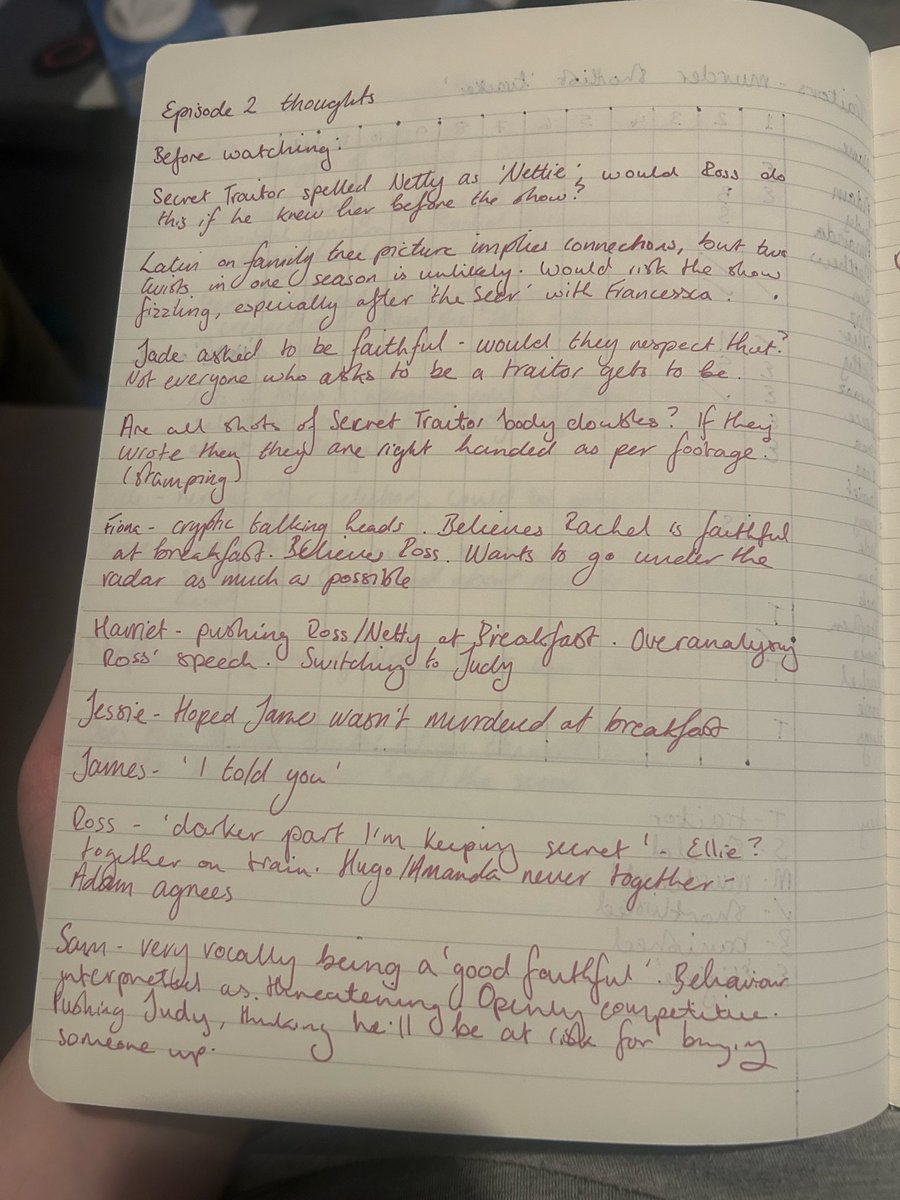 Episode 2 thoughts
Before watching:
Secret Traitor spelled Netty as 'Nettie', would Ross do
this if he knew her before the show?
Latin on family tree picture implies connections, but two
twists in one season is unlikely. Would risk the show
fizzling, especially after 'the Seer' with Francesca.
Jade asked to be faithful - would they respect that?
Not everyone who asks to be a traitor gets to be.
Are all shots of Secret Traitor body doubles? If they
wrote then they are right handed as per footage.
(stamping)
Fiona - cryptic talking heads. Believes Rachel is faithful
at breakfast. Believes Ross. Wants to go under the
radar as much as possible
Harriet - pushing Ross/Netty at Breakfast. Overanalysing
Ross' speech. Switching to Judy
Jessie - Hoped James wasn't murdered at breakfast
James - 'I told you'
Ross - 'darker part I'm keeping secret' - Ellie?
together on train. Hugo/Amanda never together -
Adam agrees
Sam - very vocally being a 'good faithful'. Behaviour
interpretted as threatening. Openly competitive.
Pushing Judy, thinking he'll be at risk for bringing
someone up.